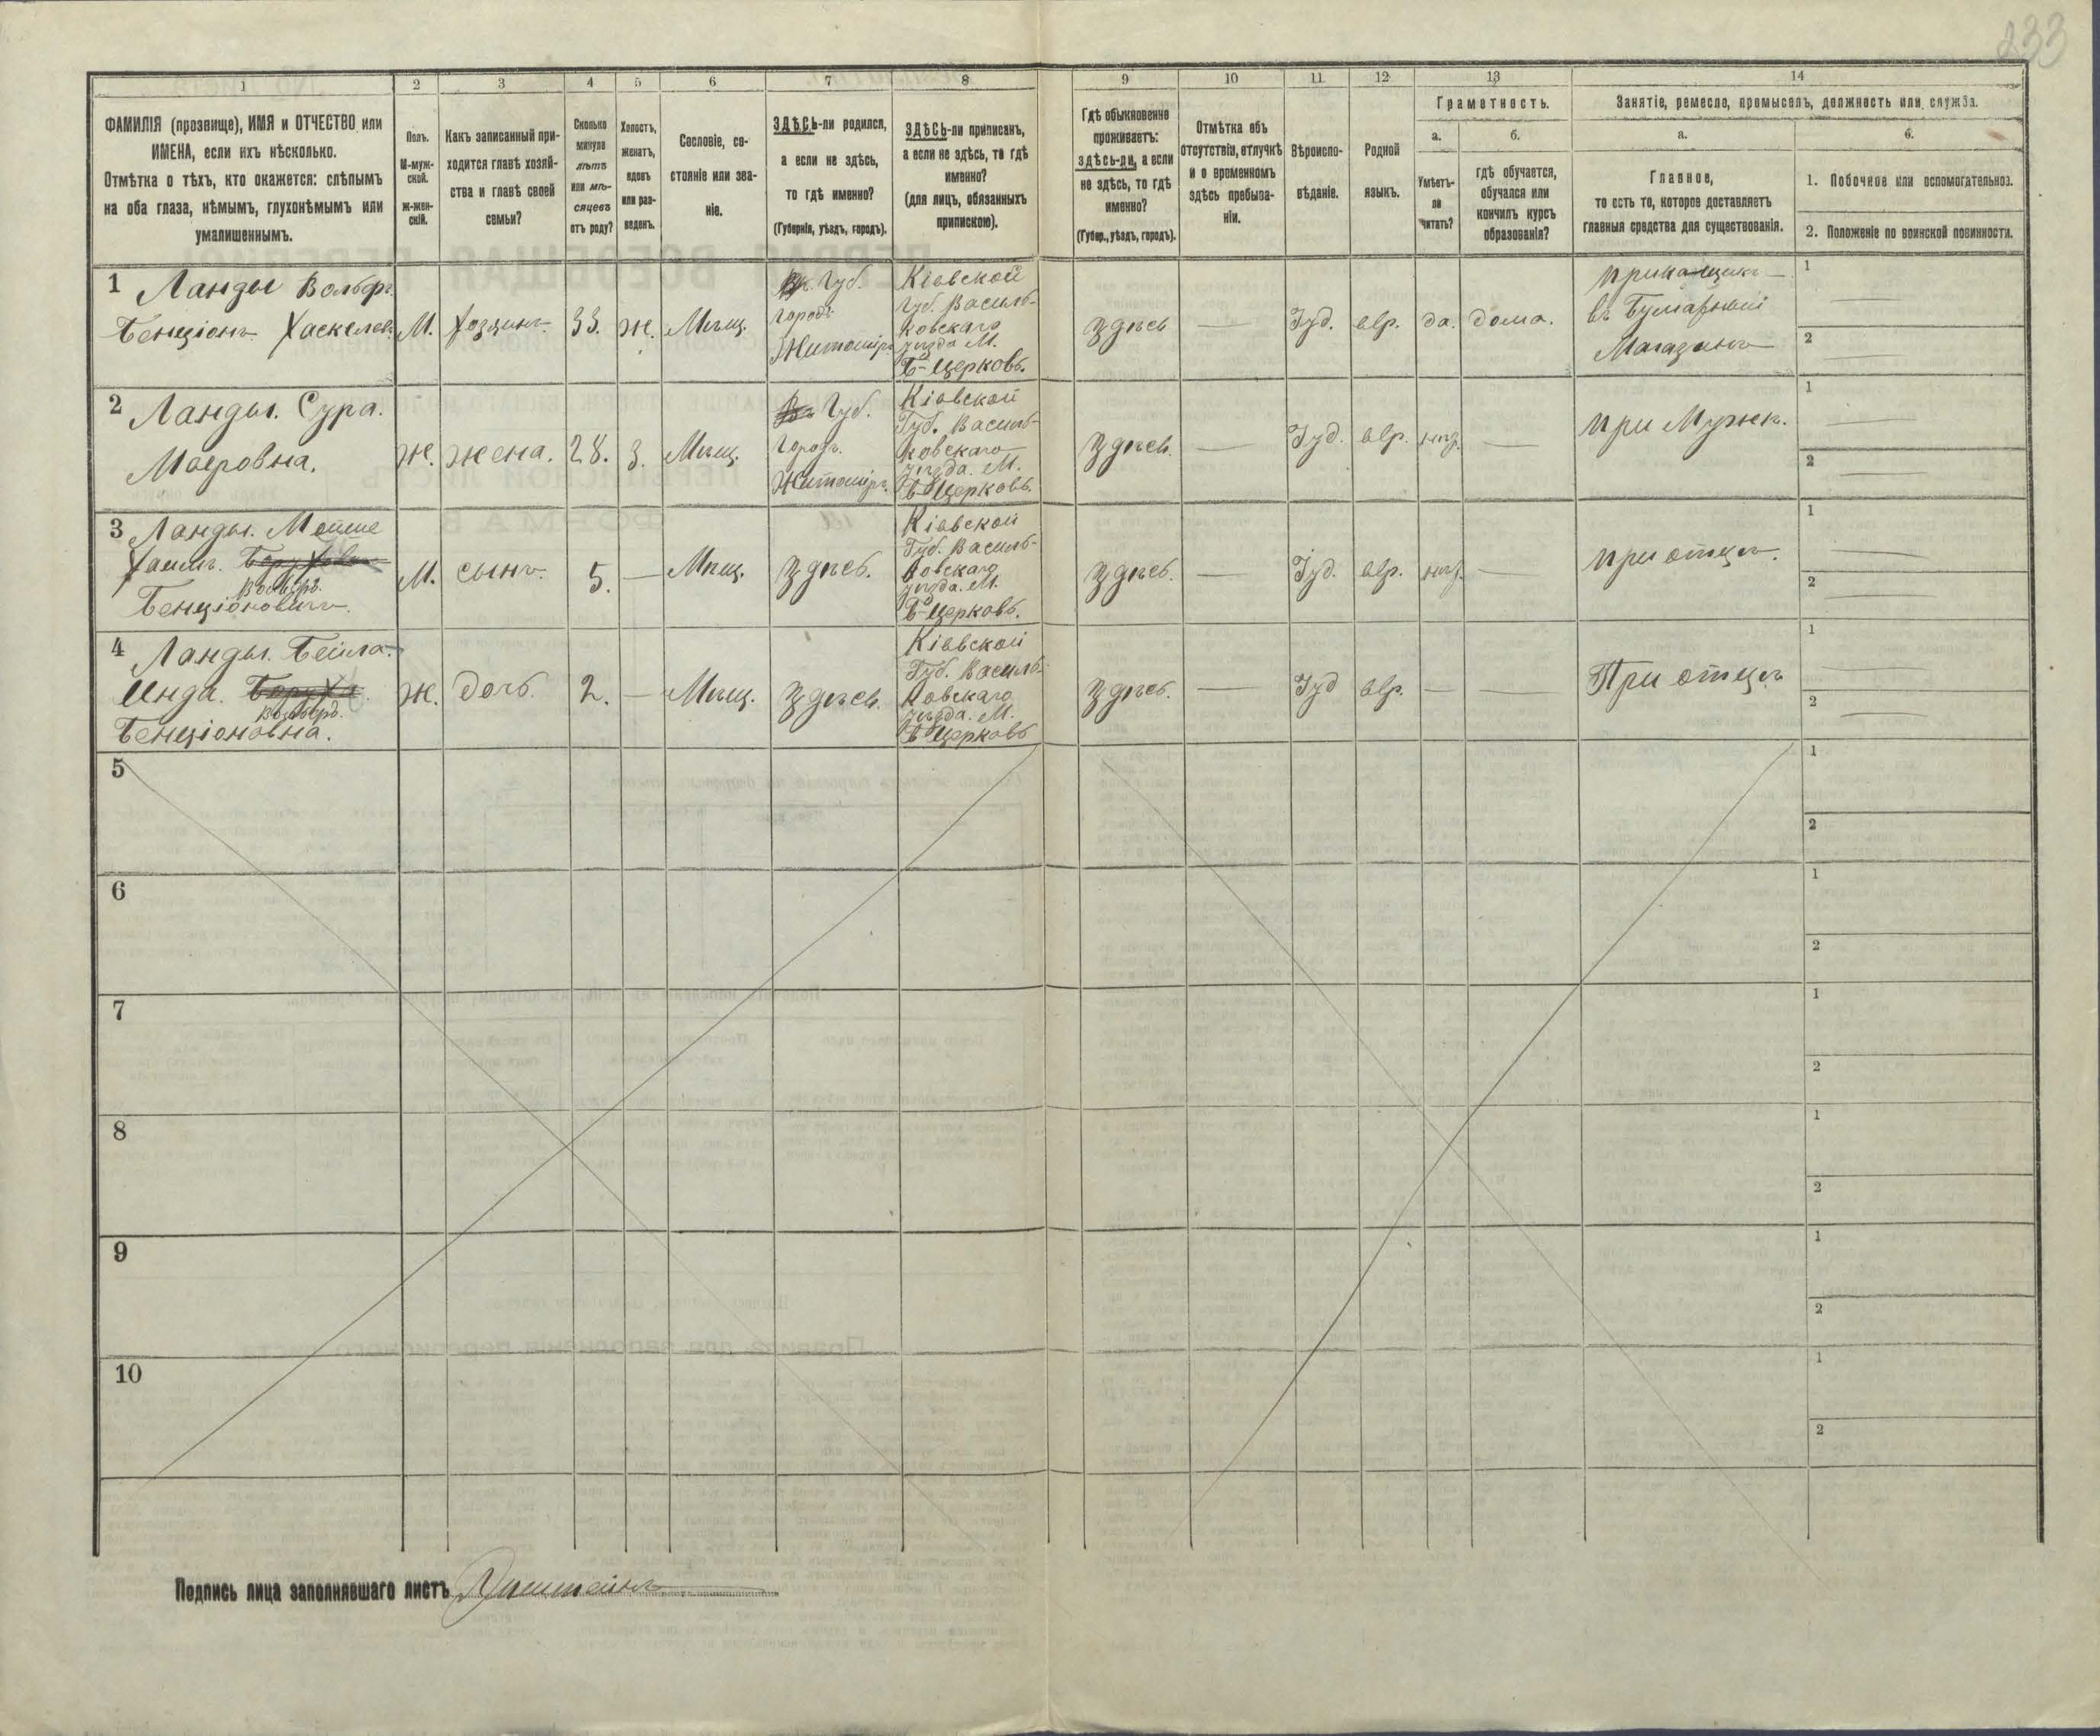 233
1 2 3 4 5 6 7 8 9 10 11 12 13 14
ФАМИЛІЯ (прозвище), ИМЯ и ОТЧЕСТВО или
ИМЕНА, если ихъ нѣсколько.
Отмѣтка о тѣхъ, кто окажется: слѣпымъ
на оба глаза, нѣмымъ, глухонѣмымъ или
умалишеннымъ.
Полъ.
М-муж-
ской.
Ж-жен-
скій.
Какъ записанный при-
ходится главѣ хозяй-
ства и главѣ своей
семьи?
Сколько
минуло
лѣтъ
или мѣ-
сяцевъ
отъ роду?
Холостъ,
женатъ,
вдовъ
или раз-
веденъ.
Сословіе, со-
стояніе или зва-
ніе.
ЗДѢСЬ-ли родился,
а если не здѣсь,
то гдѣ именно?
(Губернія, уѣздъ, городъ).
ЗДѢСЬ-ли приписанъ,
а если не здѣсь, то гдѣ
именно?
(для лицъ, обязанныхъ
припискою).
Гдѣ обыкновенно
проживаетъ:
здѣсь-ли, а если
не здѣсь, то гдѣ
именно?
(Губер., уѣздъ, городъ).
Отмѣтка объ
отсутствіи, отлучкѣ
и о временномъ
здѣсь пребыва-
ніи.
Вѣроиспо-
вѣданіе.
Родной
языкъ.
Грамотность.
а.
Умѣетъ-
ли
читать?
б.
гдѣ обучается,
обучался или
кончилъ курсъ
образованія?
Занятіе, ремесло, промыселъ, должность или служба.
а.
Главное,
то есть то, которое доставляетъ
главныя средства для существованія.
б.
1. Побочное или вспомогательное.
2. Положеніе по воинской повинности.
1 Ланды Вольфъ
Бенціонъ Хаскелев.
М.
хозяинъ.
33.
ж.
Мѣщ.
Губ.
городъ
Житоміръ
Кіевской
Губ. Василь-
ковскаго
уѣзда М.
Б-Церковь.
здѣсь
—
Іуд.
евр.
да.
дома.
прикащикъ
въ Бумажномъ
Магазинѣ
1
2
2 Ланды. Сура.
Маеровна.
Ж.
жена.
28.
З.
Мѣщ.
Губ.
городъ.
Житоміръ.
Кіевской
Губ. Василь-
ковскаго
уѣзда. М.
Б-Церковь.
здѣсь.
—
Іуд.
евр.
нѣт.
—
при Мужѣ.
1
2
3 Ланды. Мойше
Хаимъ.
Вольфъ.
Бенціоновичъ.
М.
сынъ.
5.
—
Мѣщ.
здѣсь.
Кіевской
Губ. Василь-
ковскаго
уѣзда. М.
Б-Церковь.
здѣсь.
—
Іуд.
евр.
нѣт.
—
при отцѣ.
1
2
4 Ланды. Бейла-
Инда.
Вольф.
Бенціоновна.
Ж.
дочь.
2.
—
Мѣщ.
здѣсь.
Кіевской
Губ. Василь-
ковскаго
уѣзда. М.
Б-Церковь
здѣсь.
—
Іуд
евр.
—
—
При отцѣ
1
2
5
1
2
6
1
2
7
1
2
8
1
2
9
1
2
10
1
2
Подпись лица заполнявшаго листъ